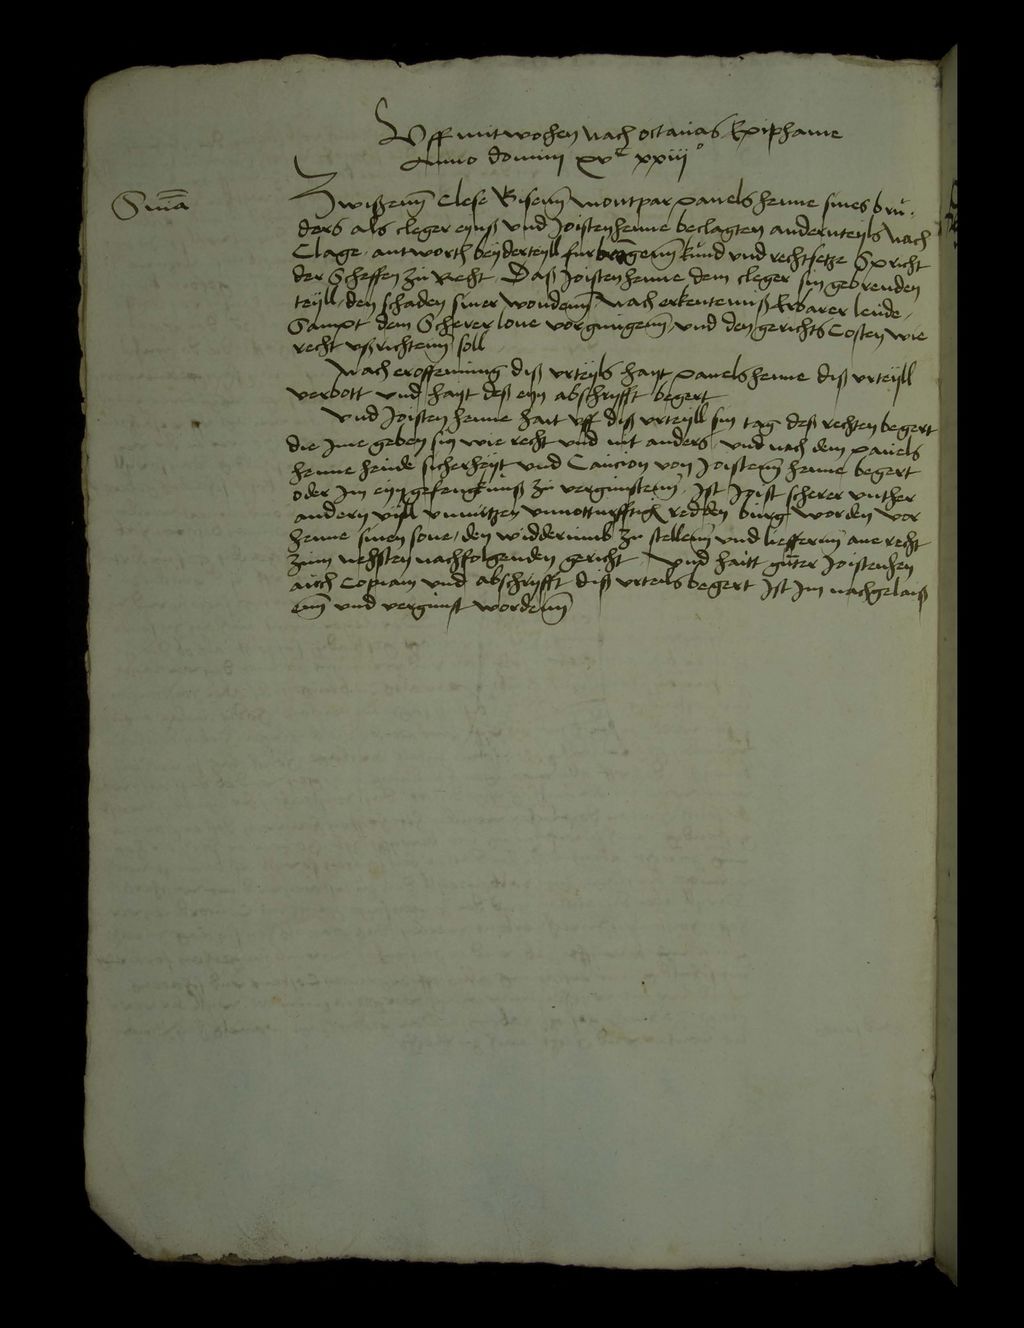 Vff mitwochen nach octauas Epiphanie
Anno domini xvc xxiii°
Sma
Zwißenn Clese Bisenn montpar pauels henne sines bru-
ders als cleger eynß vnd Joisten henne beclagten andernteyls nach
Clage antworth beyderteyll furbrengenn kund vnd rechtsetze Spricht
der Scheffen zu Recht Daß Joisten henne dem cleger sin geborenden
teyll den schaden siner wondenn nach erkentenuiß Erbarer leude
Sampt dem Scherer lone vorgnugenn vnd den gerichts Costen wie
recht vßrichtenn soll
Nach eroffenung diß vrteyls hayt pauels henne diß vrteyll
verbott vnd hayt deß eyn abschryfft begert
Vnd Joisten henne hait vff diß vrteyll sin tag deß rechten begert
die Jme geben sin wie recht vnd nit anders vnd nach dem pauels
henne heude sicherheyt vnd Caucion von Joistenn henne begert
oder Jn eyn gefengkniß zu vergunstenn Ist Joist scherer vnther
andern vill vnnutzen vnnotturfftigen redden burg worden vor
henne sinen sone den widderumb zu stellenn vnd liefferenn ane recht
zum nehsten nachfolgenden gericht Vnd haitt guter Joistenhen
auch Copiam vnd abschryfft diß vrteils begert Ist Jm nachgelaiß
enn vnd vergunst wordenn